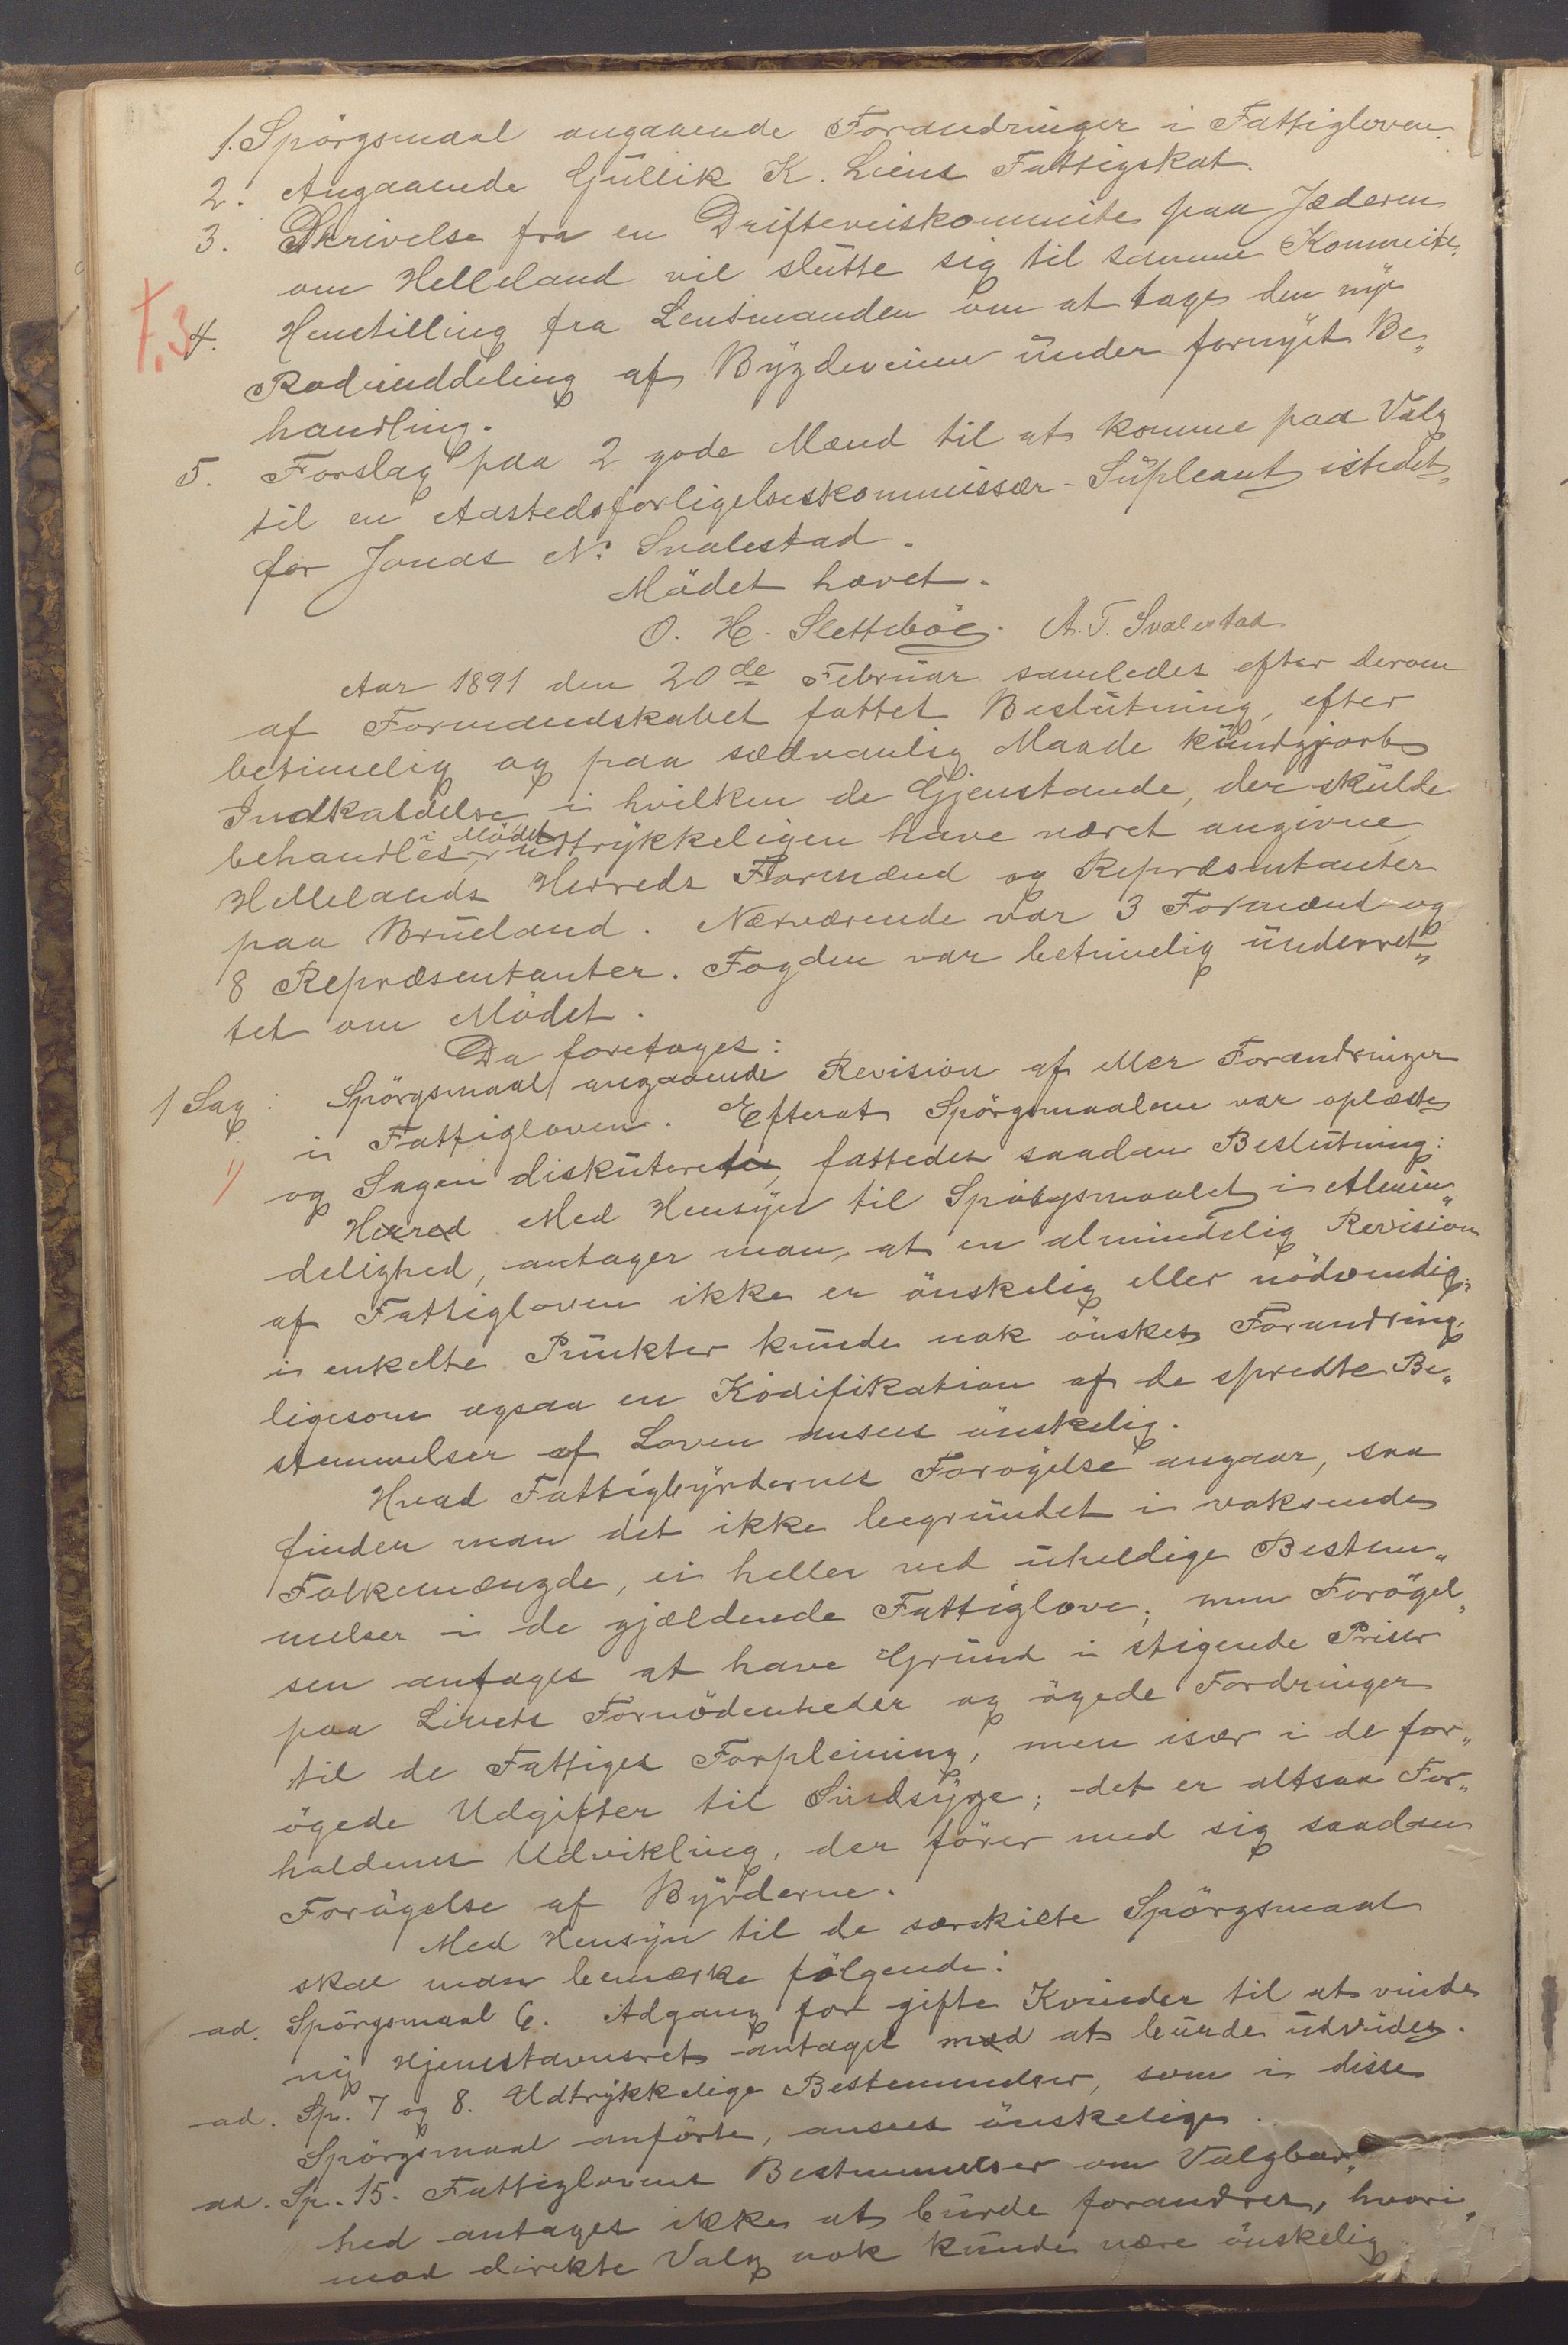 1. Spörgsmaal angaaende Forandringer i Fattigloven.
2. Angaaende Gullik K. Liens Fattigskat.
3. Skrivelse fra en Drifteveiskommite paa Jæderen
om Helleland vil slutte sig til samme Kommite.
4. Henstilling fra Lensmanden om at tage den nye
F.3
Rodeinddeling af Bygdeveiene under fornyet Be„
handling.
5. Forslag paa 2 gode Mænd til at komme paa Valg
til en Aastedsforligelseskommissær-Supleant istedet
for Jonas N. Svalestad.
Mödet hævet.
O. H. Sletteböe. A. T. Svalestad
Aar 1891 den 20de Februar samledes efter derom
af Formandskabet fattet Beslutning, efter
betimelig og paa sædvanlig Maade kundgjort
Indkaldelse i hvilken de Gjenstande, der skulde
behandles i Mödet udtrykkeligen have været angivne,
Hellelands Herreds Formænd og Repræsentanter
paa Brueland. Nærværende var 3 Formænd og
8 Repræsentanter. Fogden var betimelig underret„
tet om Mödet.
Da foretages:
1 Sag: Spörgsmaal angaaende Revision af eller Forandringer
i Fattigloven. Efterat Spörgsmaalene var oplæste
1)
og Sagen diskuteret, fattedes saadan Beslutning:
Herred Med Hensyn til Spörgsmaalet i Almin„
delighed, antager man, at en almindelig Revision
af Fattigloven ikke er önskelig eller nödvendig;
i enkelte Punkter kunde nok önskes Forandring,
ligesom ogsaa en Kodifikation af de spredte Be„
stemmelser af Loven ansees önskelig.
Hvad Fattigbyrdernes Forögelse angaar, saa
finder man det ikke begrundet i voksende
Folkemængde, ei heller ved uheldige Bestem„
melser i de gjældende Fattiglove; men Forögel„
sen antages at have Grund i stigende Priser
paa Livets Fornödenheder og ögede Fordringer
til de Fattiges Forpleining, men især i de for„
ögede Udgifter til Sindsyge; det er altsaa For„
holdenes Udvikling, der förer med sig saadan
Forögelse af Byrderne.
Med Hensyn til de særskilte Spörgsmaal
skal man bemærke fölgende:
ad. Spörgsmaal 6. Adgang for gifte Kvinder til at vinde
ny Hjemstavnsret antages med at burde udvides.
ad. Sp. 7 og 8. Udtrykkelige Bestemmelser, som i disse
Spörgsmaal anförte, ansees önskelige.
ad. Sp. 15. Fattiglovens Bestemmelser om Valgbar„
hed antages ikke at burde forandres, hvori„
mod direkte Valg nok kunde være önskelig